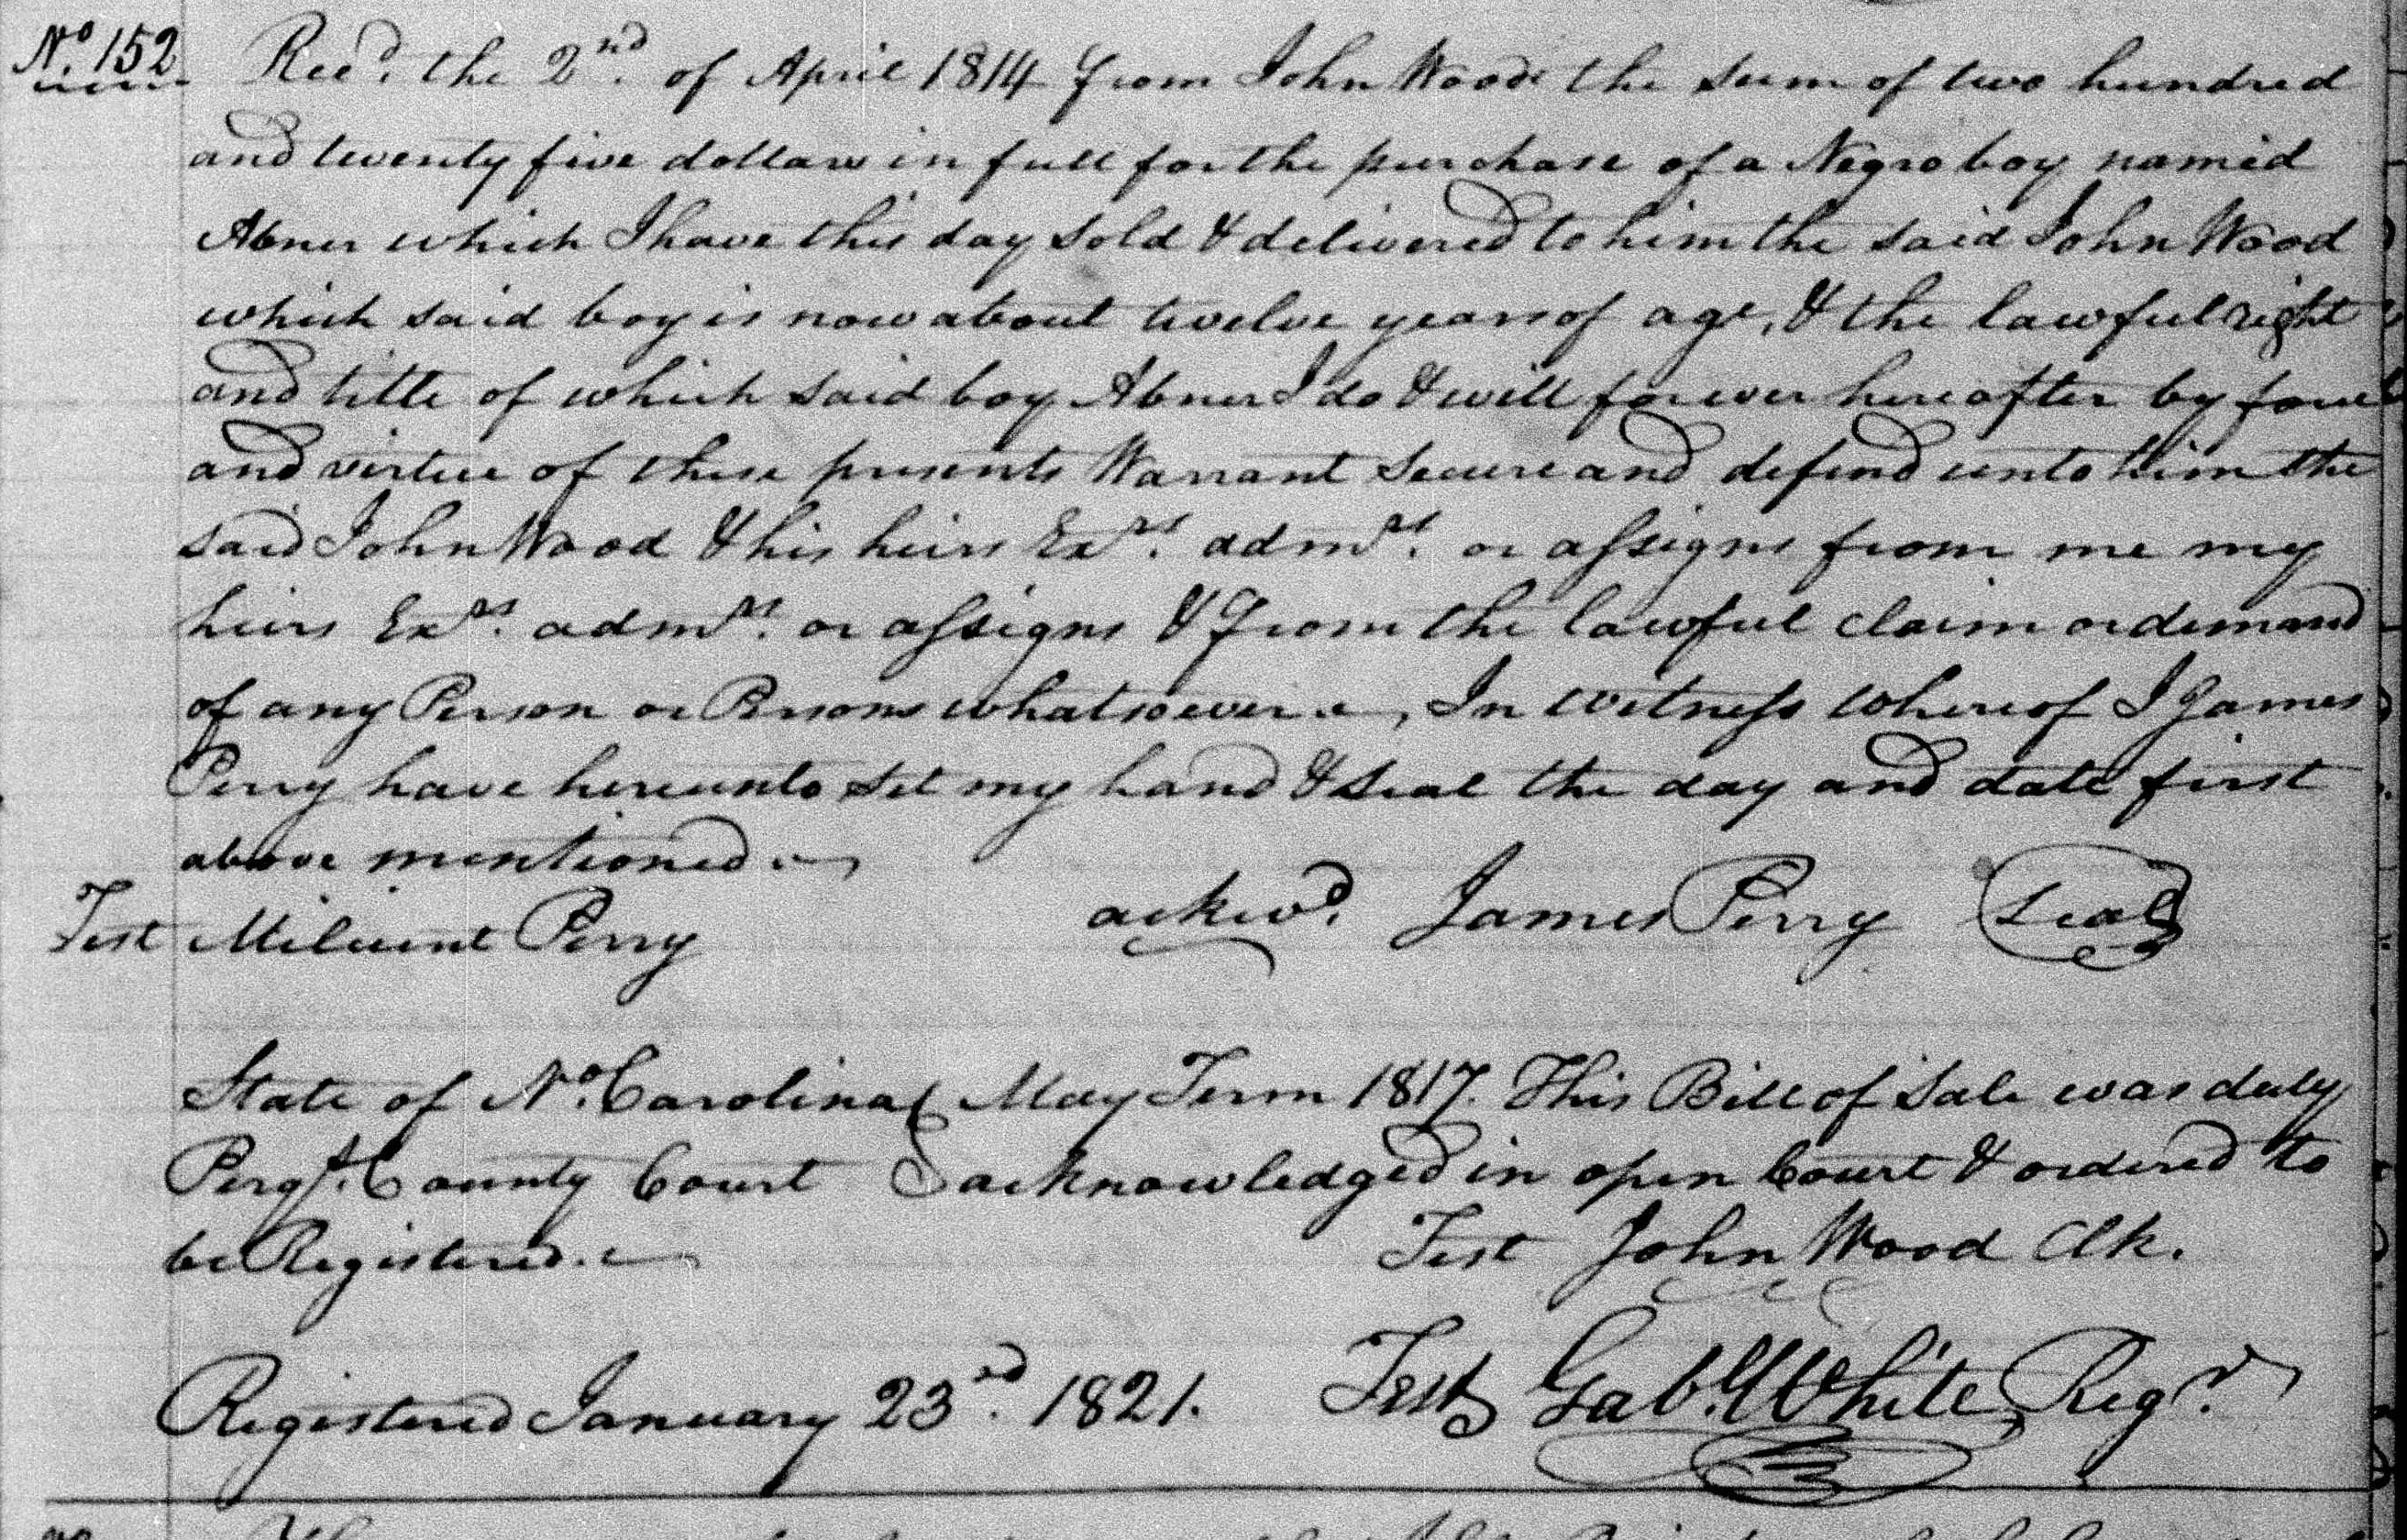 No. 152 Recd. the 2nd. of April 1814 from John Wood the sum of two hundred
and twenty five dollars in full for the purchase of a Negro boy named
Abner which I have this day sold & delivered to him the said John Wood
which said boy is now about twelve years of age, & the lawful right
and title of which said boy Abner I do & will forever hereafter by force
and virtue of these presents Warrant Secure and defend unto him the
said John Wood & his heirs Exrs. admrs. or assigns from me my
heirs Exrs. admrs. or assigns & from the lawful claim or demand
of any Person or Persons whatsoever, In witness whereof I James
Perry have hereunto set my hand & Seal the day and date first
above mentioned
Test Milicent Perry ackwd. James Perry Seal
State of No. Carolina May Term 1817. This Bill of Sale was duly
Perqs. County Court acknowledged in open Court & ordered to
be Registered.
Test John Wood Clk.
Registered January 23rd. 1821. Test Gab. White Regr.